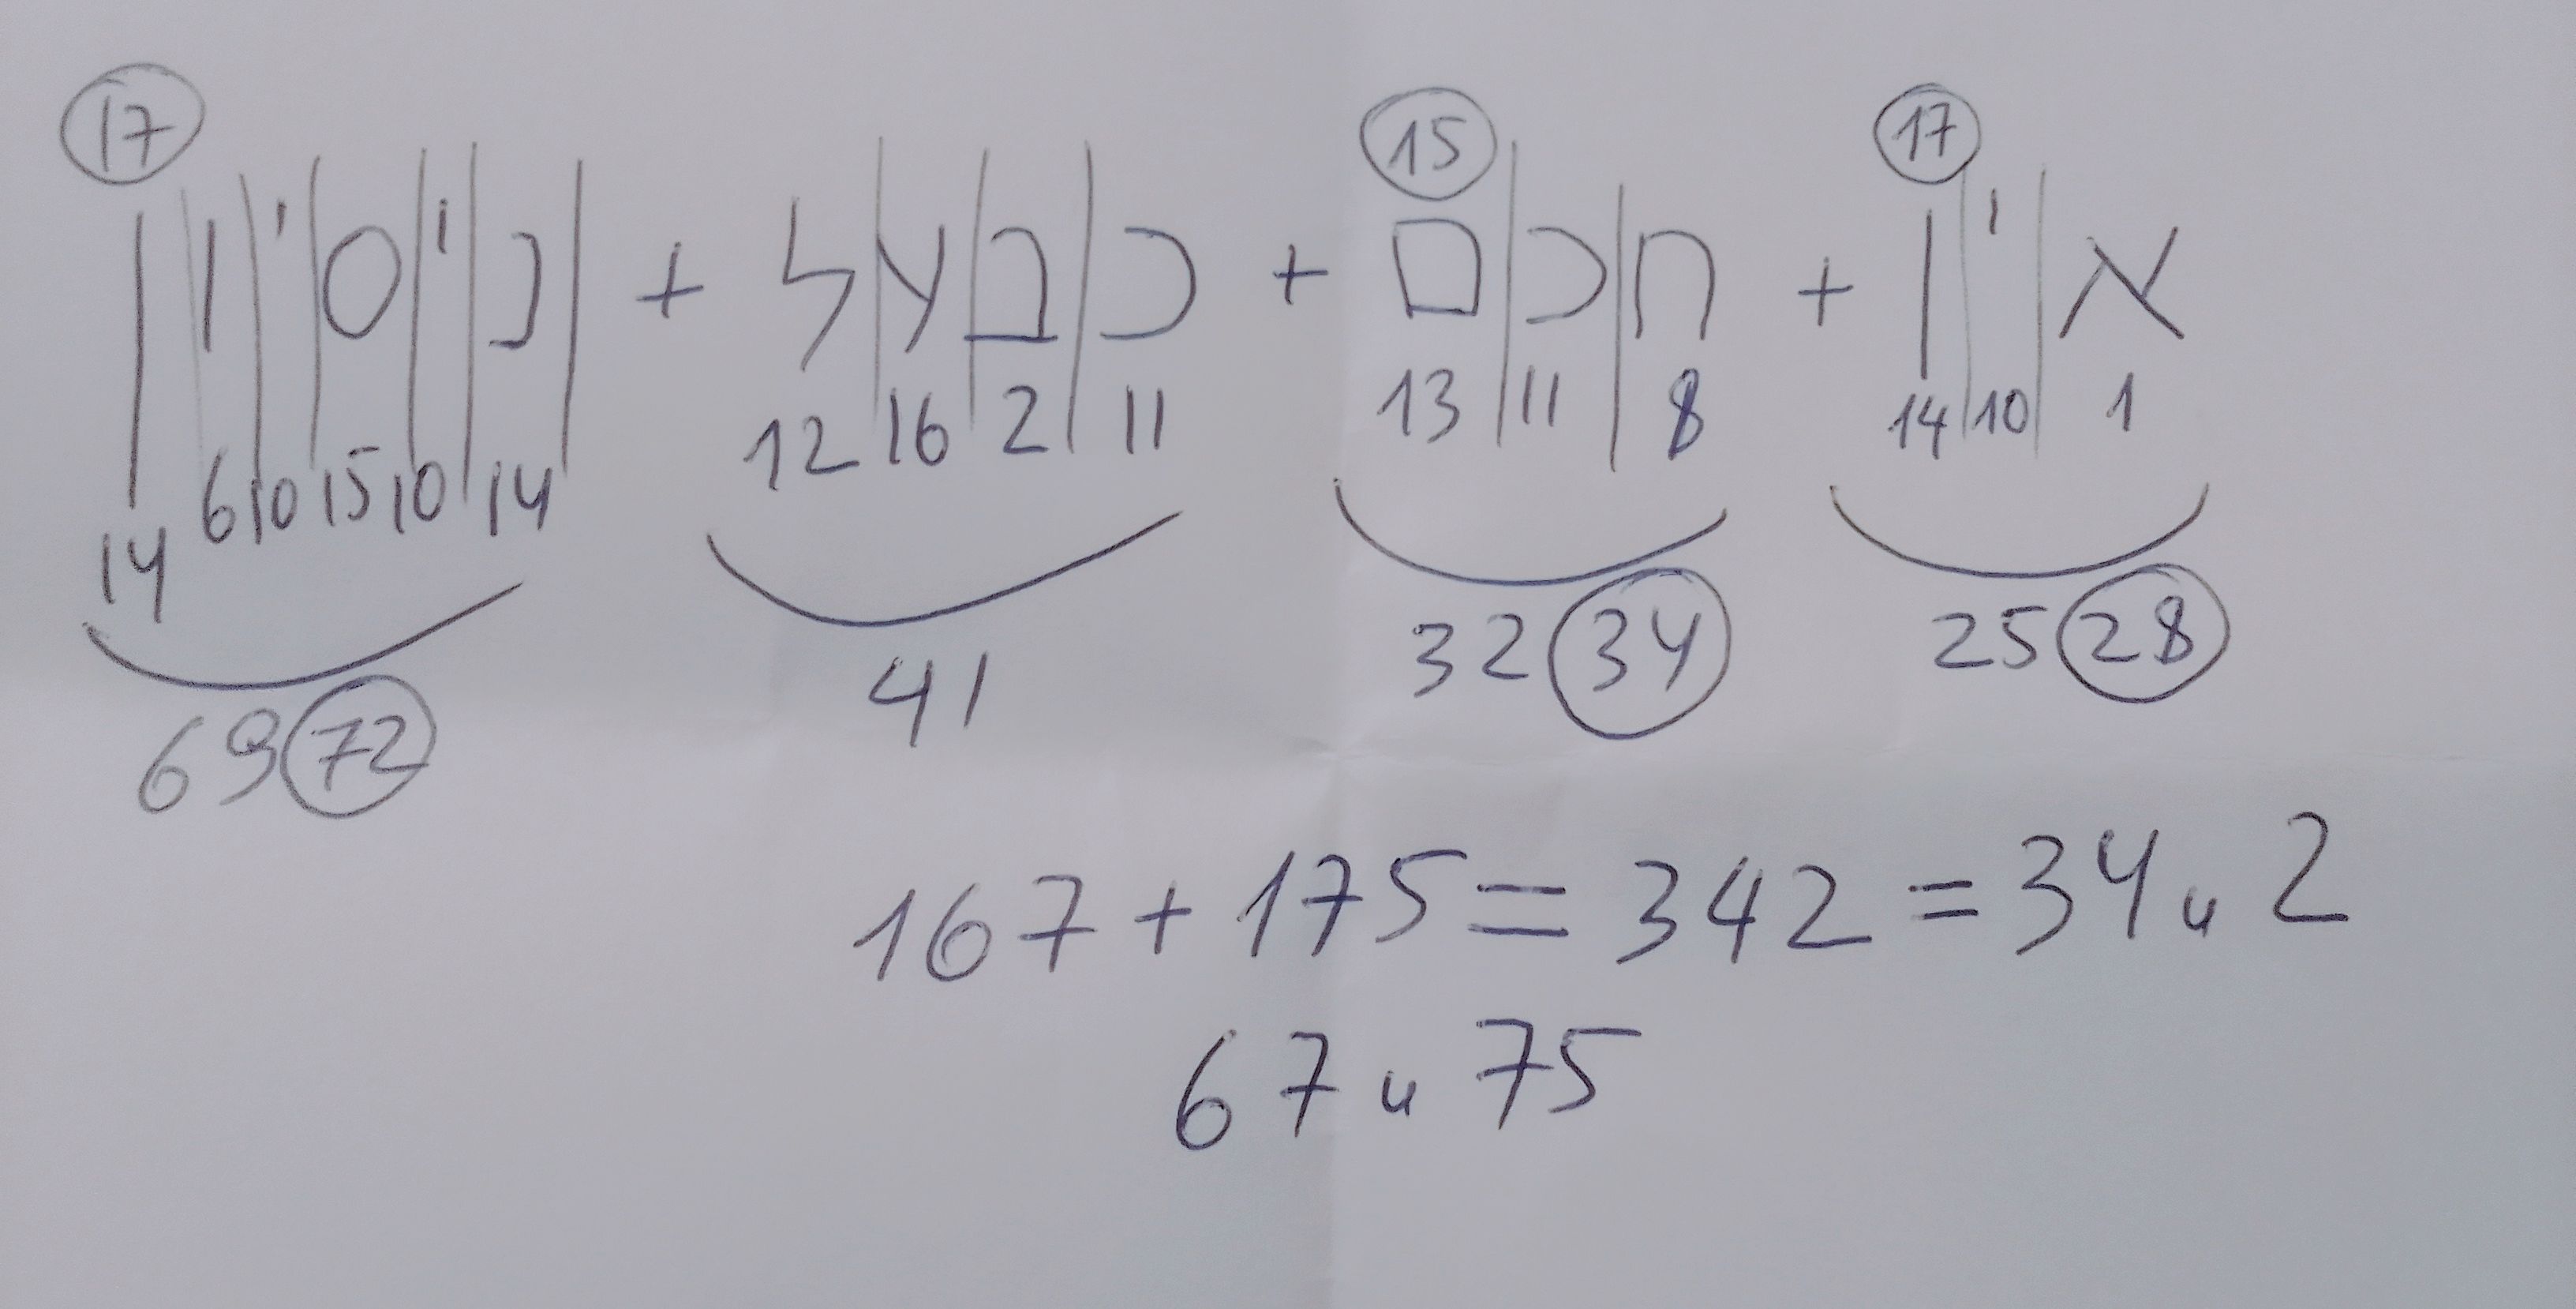 17 15 17
אין + חכם + כבעל + ניסיון
14 6 10 15 10 14 12 16 2 11 13 11 8 14 10 1
69 72 41 32 34 25 28
167 + 175 = 342 = 34 и 2
67 и 75